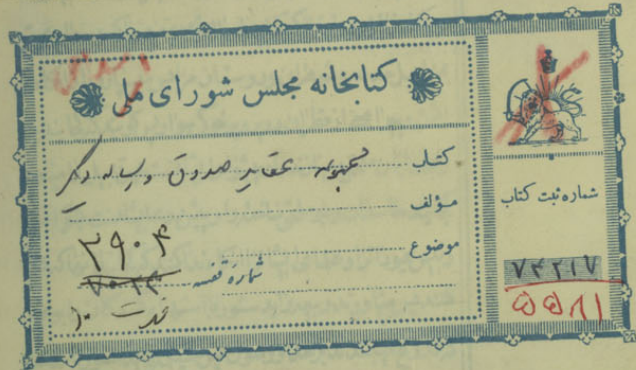 کتابخانه مجلس شورای ملی
اسلامی
کتاب مجموعه عقاید صدوق و رساله دیگر
مؤلف
موضوع
۳۹۰۴
شماره قفسه
شماره ثبت کتاب
۷۴۲۱۷
۵۵۸۱